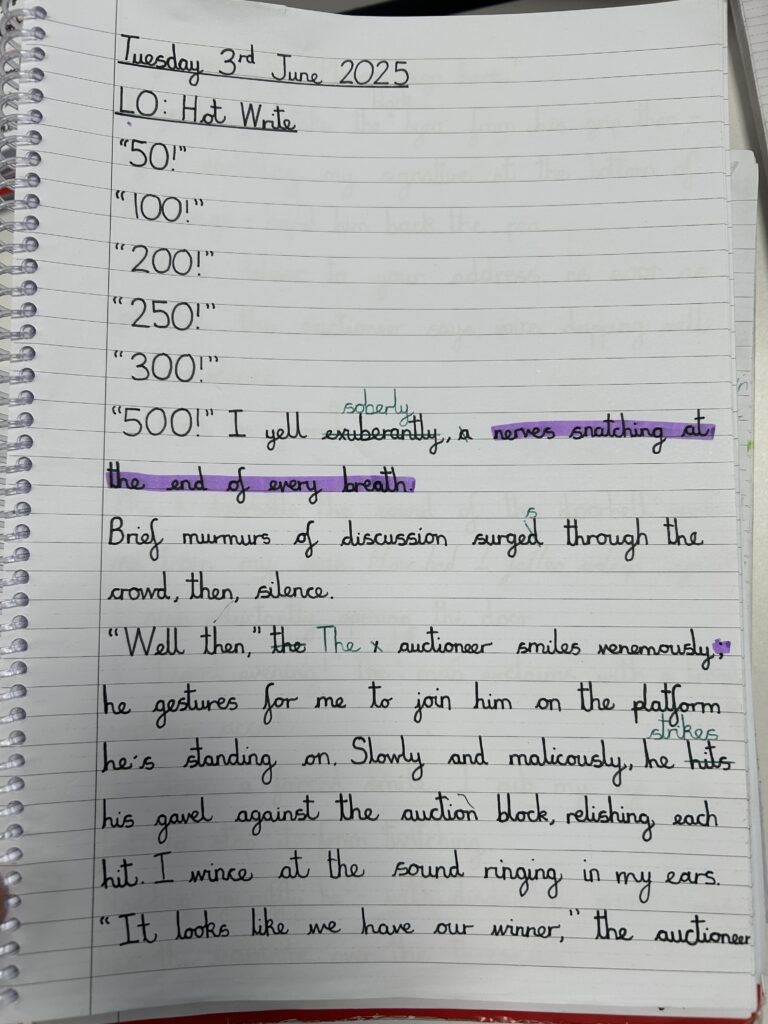 Tuesday 3rd June 2025
LO: Hot Write
"50!"
"100!"
"200!"
"250!"
"300!"
soberly
"500!" I yell exuberantly, nerves snatching at
the end of every breath.
s
Brief murmurs of discussion surged through the
crowd, then, silence.
"Well then," the The x auctioneer smiles venemously;
he gestures for me to join him on the platform
strikes
he's standing on. Slowly and malicously, he hits
his gavel against the auction block, relishing each
hit. I wince at the sound ringing in my ears.
"It looks like we have our winner," the auctioneer